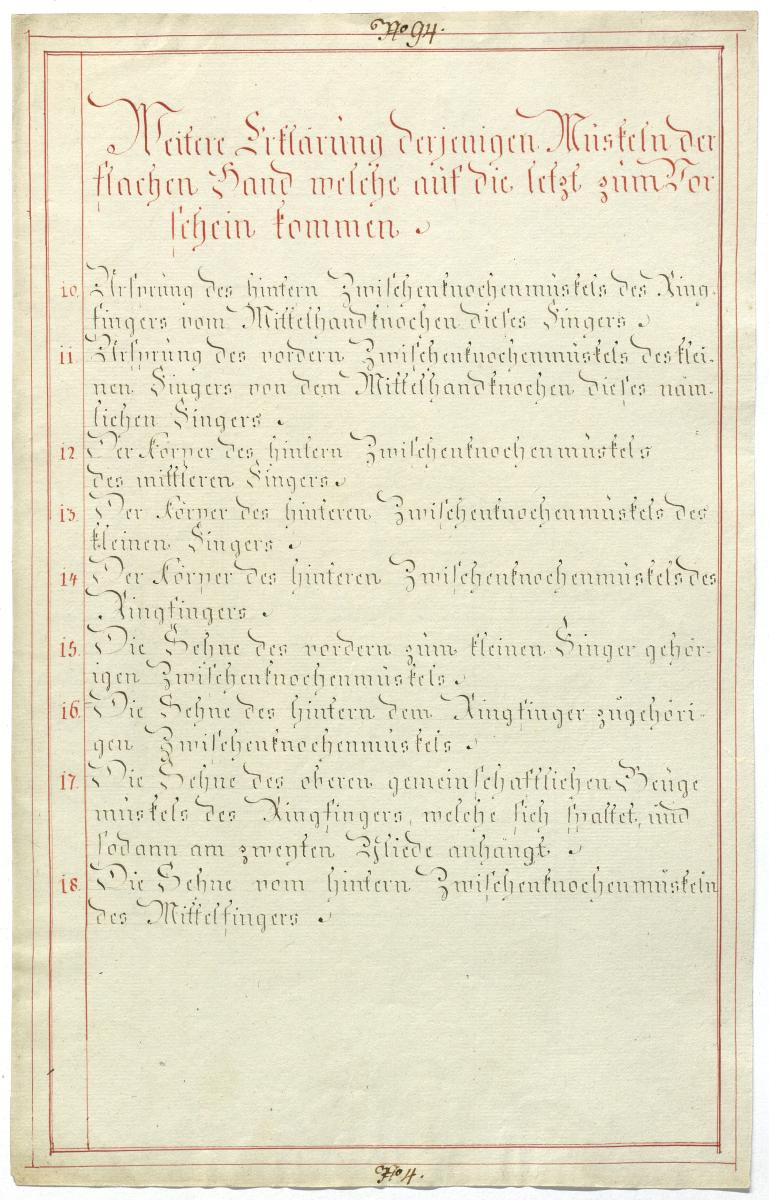 No 94.
Weitere Erklärung derjenigen Muskeln der
flachen Hand welche auf die letzt zum Vor
schein kommen.
10. Ursprung des hintern Zwischenknochenmuskels des Ring-
fingers vom Mittelhandknochen dieses Fingers.
11. Ursprung des vordern Zwischenknochenmuskels des klei-
nen Fingers von dem Mittelhandknochen dieses näm-
lichen Fingers.
12 Der Körper des hintern Zwischenknochenmuskels
des mittleren Fingers.
13. Der Körper des hinteren Zwischenknochenmuskels des
kleinen Fingers.
14. Der Körper des hinteren Zwischenknochenmuskels des
Ringfingers.
15. Die Sehne des vordern zum kleinen Finger gehör-
igen Zwischenknochenmuskels.
16. Die Sehne des hintern dem Ringfinger zugehöri-
gen Zwischenknochenmuskels.
17. Die Sehne des oberen gemeinschaftlichen Beuge
muskels des Ringfingers, welche sich spaltet, und
sodann am zweyten Gliede anhängt.
18. Die Sehne vom hintern Zwischenknochenmuskeln
des Mittelfingers.
No 4.